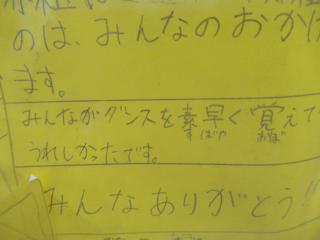 のは、みんなのおかげ
ます。
みんながダンスを素早く覚えて
すばや おぼ
うれしかったです。
みんなありがとう!!